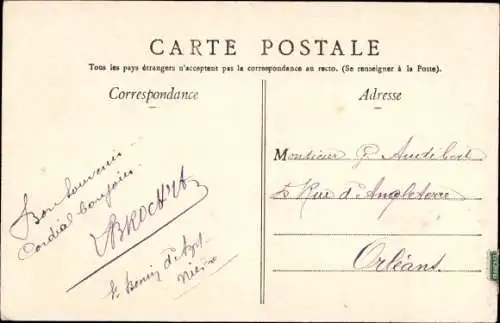 CARTE POSTALE
Tous les pays étrangers n'acceptent pas la correspondance au recto. (Se renseigner à la Poste).
Correspondance
Adresse
Bon Souvenir
Cordial bonjour
BROCHU
Nièvre
Monsieur G. Audibert
5 Rue d'Angleterre
Orléans.